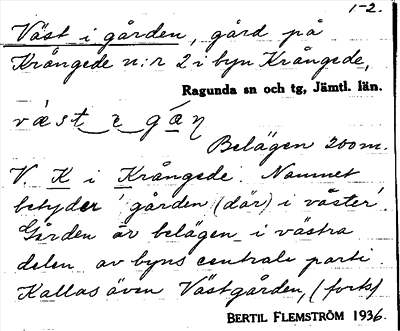 1-2.
Väst i gården, gård på
Krångede n:r 2 i byn Krångede,
Ragunda sn och tg, Jämtl. län.
væst e gáŋ
Belägen 200 m.
V. K i Krångede. Namnet
betyder 'gården (där) i väster'.
Gården är belägen i västra
delen av byns centrala parti.
Kallas även Västgården, (forts)
BERTIL FLEMSTRÖM 1936.